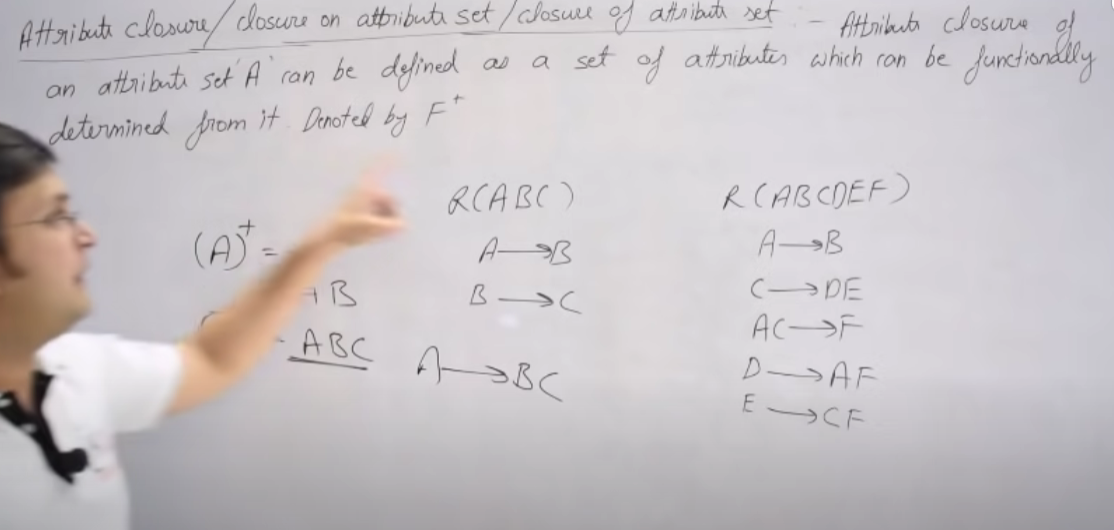 Attribute closure/closure on attribute set/closure of attribute set :- Attribute closure of
an attribute set 'A' can be defined as a set of attributes which can be functionally
determined from it. Denoted by F⁺
(A)⁺ =
AB
ABC
R(ABC)
A→B
B→C
A→BC
R(ABCDEF)
A→B
C→DE
AC→F
D→AF
E→CF